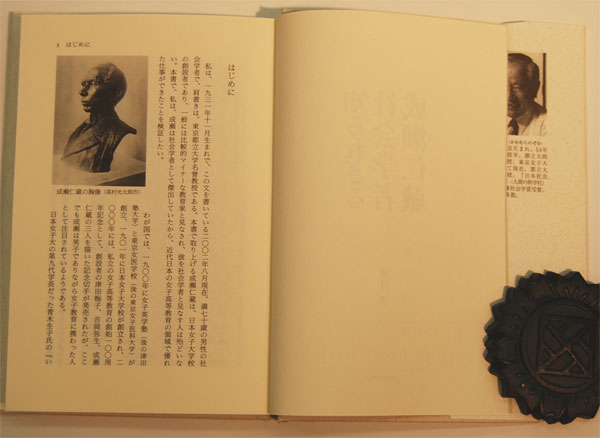 3 はじめに
はじめに
私は、一九三一年十一月生まれで、この文を書いている二〇〇二年八月現在、満七十歳の男性の社
会学者で、肩書きは、東京都立大学名誉教授である。本書で取り上げる成瀬仁蔵は、日本女子大学校
の創設者であり、一般には比較的マイナーな教育家と見なされ、彼を社会学者と見なす人は殆どいな
い。本書で、私は、成瀬は社会学者として傑出していたから、近代日本の女子高等教育の領域で優れ
た仕事ができたことを検証したい。
わが国では、一九〇〇年に女子英学塾（後の津田
塾大学）と東京女医学校（後の東京女子医科大学）が
創立、一九〇一年に日本女子大学校が創立され、二
〇〇〇年には、私立の女子高等教育の創始一〇〇周
年記念として、創設者の津田梅子、吉岡弥生、成瀬
仁蔵の三人を描いた記念切手が発売されたが、ここ
でも成瀬は男子でありながら女子教育に携わった人
として注目されているようである。
日本女子大の第九代学長だった青木生子氏の『い
成瀬仁蔵の胸像（高村光太郎作）